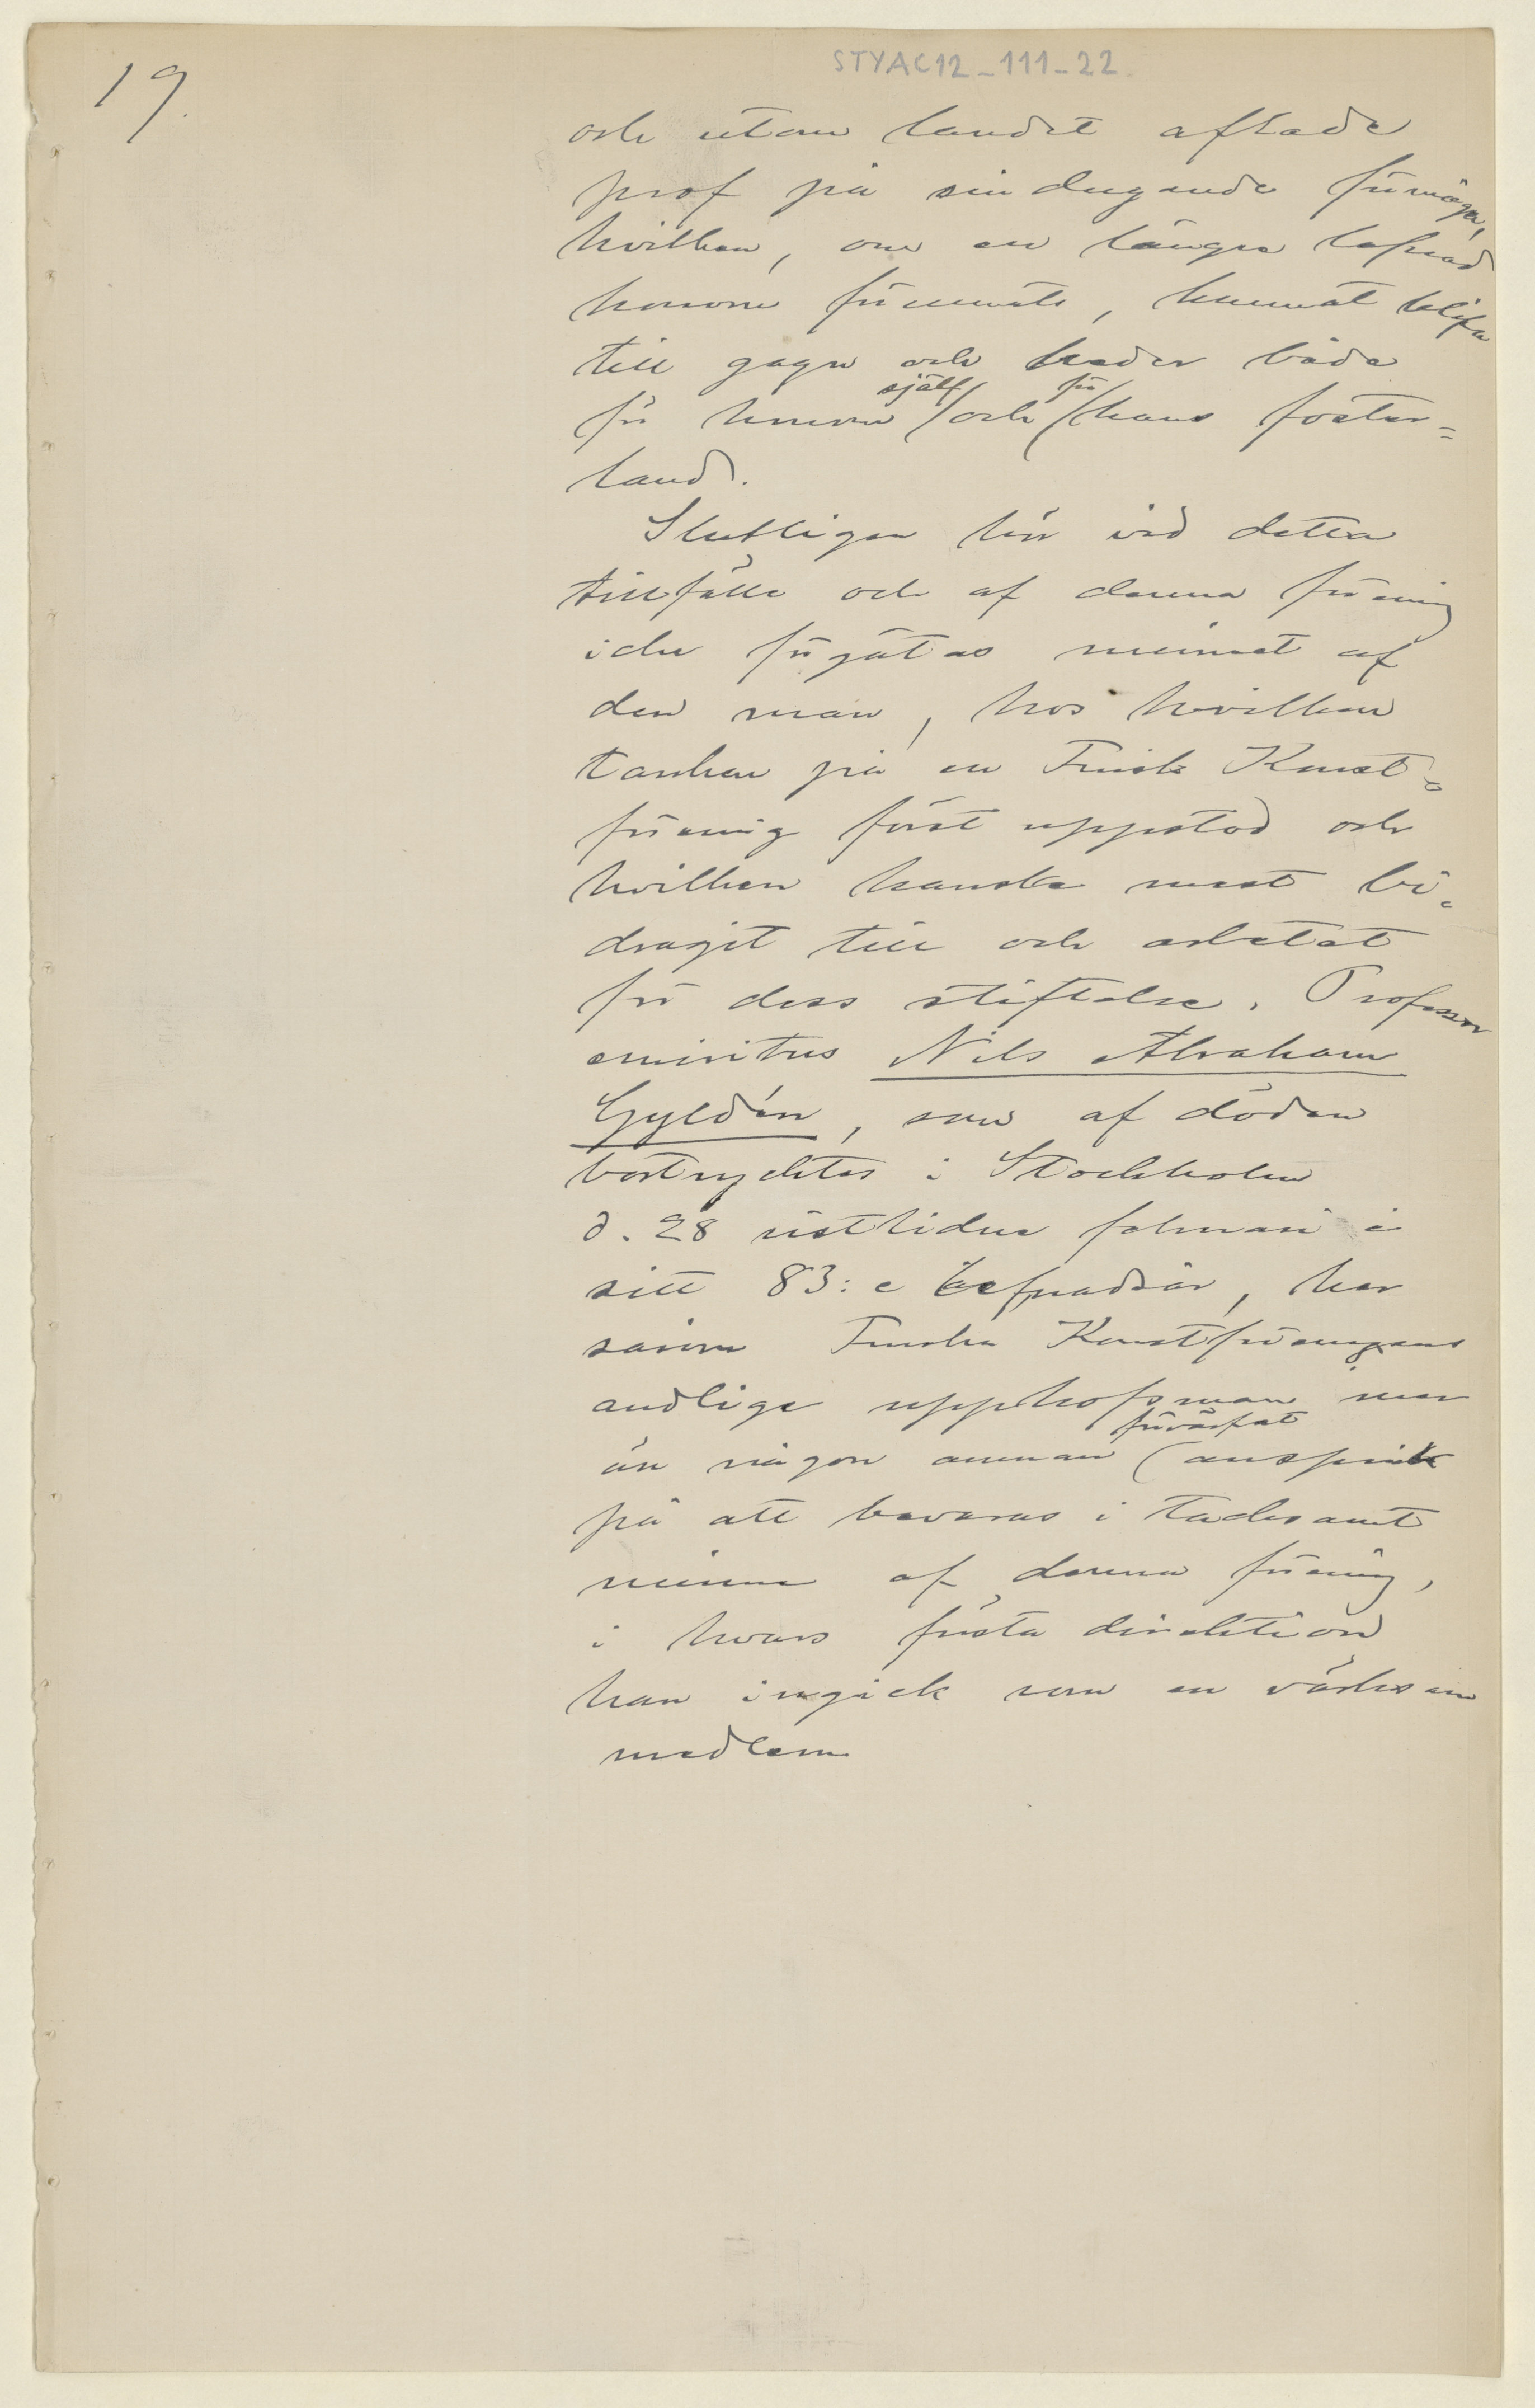 STYAC12_111_22
19.
och utom landet aflade
prof på sin dugande förmåga,
hvilken, om en längre lefnad
honom förunnats, kunnat blifva
till gagn och heder både
för honom själf och för hans foster=
land.
Slutligen bör vid detta
tillfälle och af denna förening
icke förgätas minnet af
den man, hos hvilken
tanken på en Finsk Konst=
förening först uppstod och
hvilken kanske mest bi=
dragit till och arbetat
för dess stiftelse. Professor
emiritus Nils Abraham
Gyldén, som af döden
bortrycktes i Stockholm
d. 28 sistlidne februari i
sitt 83:e lefnadsår, har
såsom Finska Konstföreningens
andlige upphofsman mer
än någon annan förvärfvat anspråk
på att bevaras i tacksamt
minne af denna förening,
i hvars första direktion
han ingick som en värksam
medlem